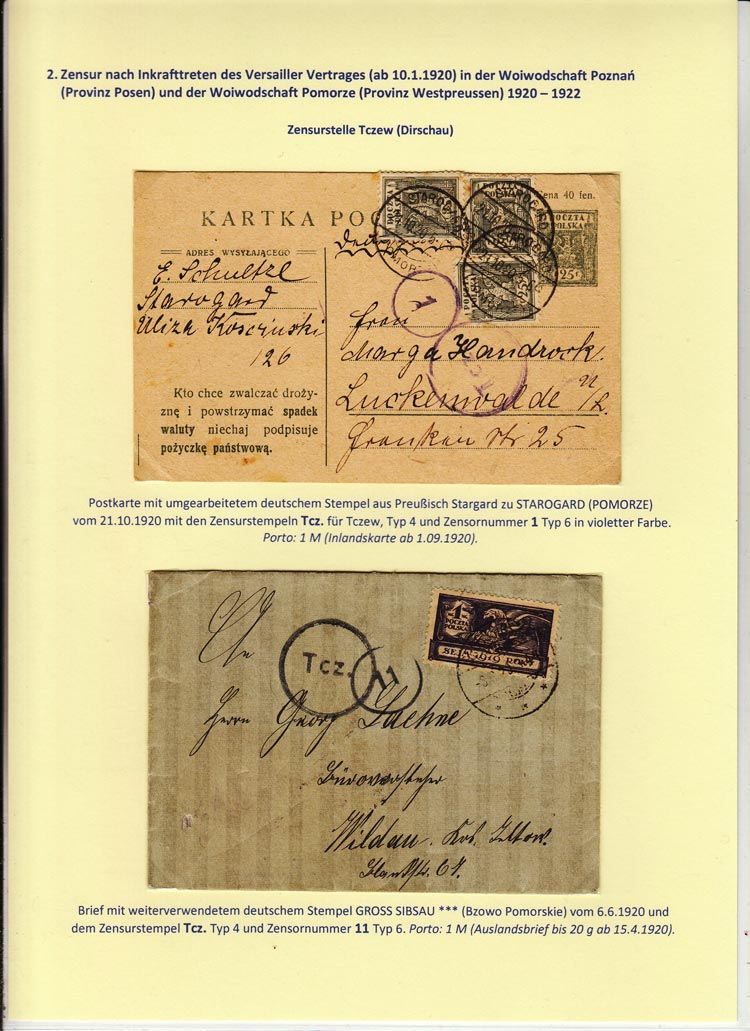 2. Zensur nach Inkrafttreten des Versailler Vertrages (ab 10.1.1920) in der Woiwodschaft Poznań
(Provinz Posen) und der Woiwodschaft Pomorze (Provinz Westpreussen) 1920 – 1922
Zensurstelle Tczew (Dirschau)
Cena 40 fen.
KARTKA POC
POCZTA
POLSKA
25
ADRES WYSYŁAJĄCEGO
E. Schultze
Starogard
Uliza Kosciuski
126
STAROGARD
1
Tcz
Frau
Marga Handrock.
Luckenwalde
Franken Str 25
Kto chce zwalczać droży-
znę i powstrzymać spadek
waluty niechaj podpisuje
pożyczkę państwową.
Postkarte mit umgearbeitetem deutschem Stempel aus Preußisch Stargard zu STAROGARD (POMORZE)
vom 21.10.1920 mit den Zensurstempeln Tcz. für Tczew, Typ 4 und Zensornummer 1 Typ 6 in violetter Farbe.
Porto: 1 M (Inlandskarte ab 1.09.1920).
1
POCZTA
POLSKA
SEJM 1919 ROKU
An
Tcz.
11
Herrn Georg Daehne
Bürovorsteher
Wildau. Krs. Teltow.
Brief mit weiterverwendetem deutschem Stempel GROSS SIBSAU *** (Bzowo Pomorskie) vom 6.6.1920 und
dem Zensurstempel Tcz. Typ 4 und Zensornummer 11 Typ 6. Porto: 1 M (Auslandsbrief bis 20 g ab 15.4.1920).